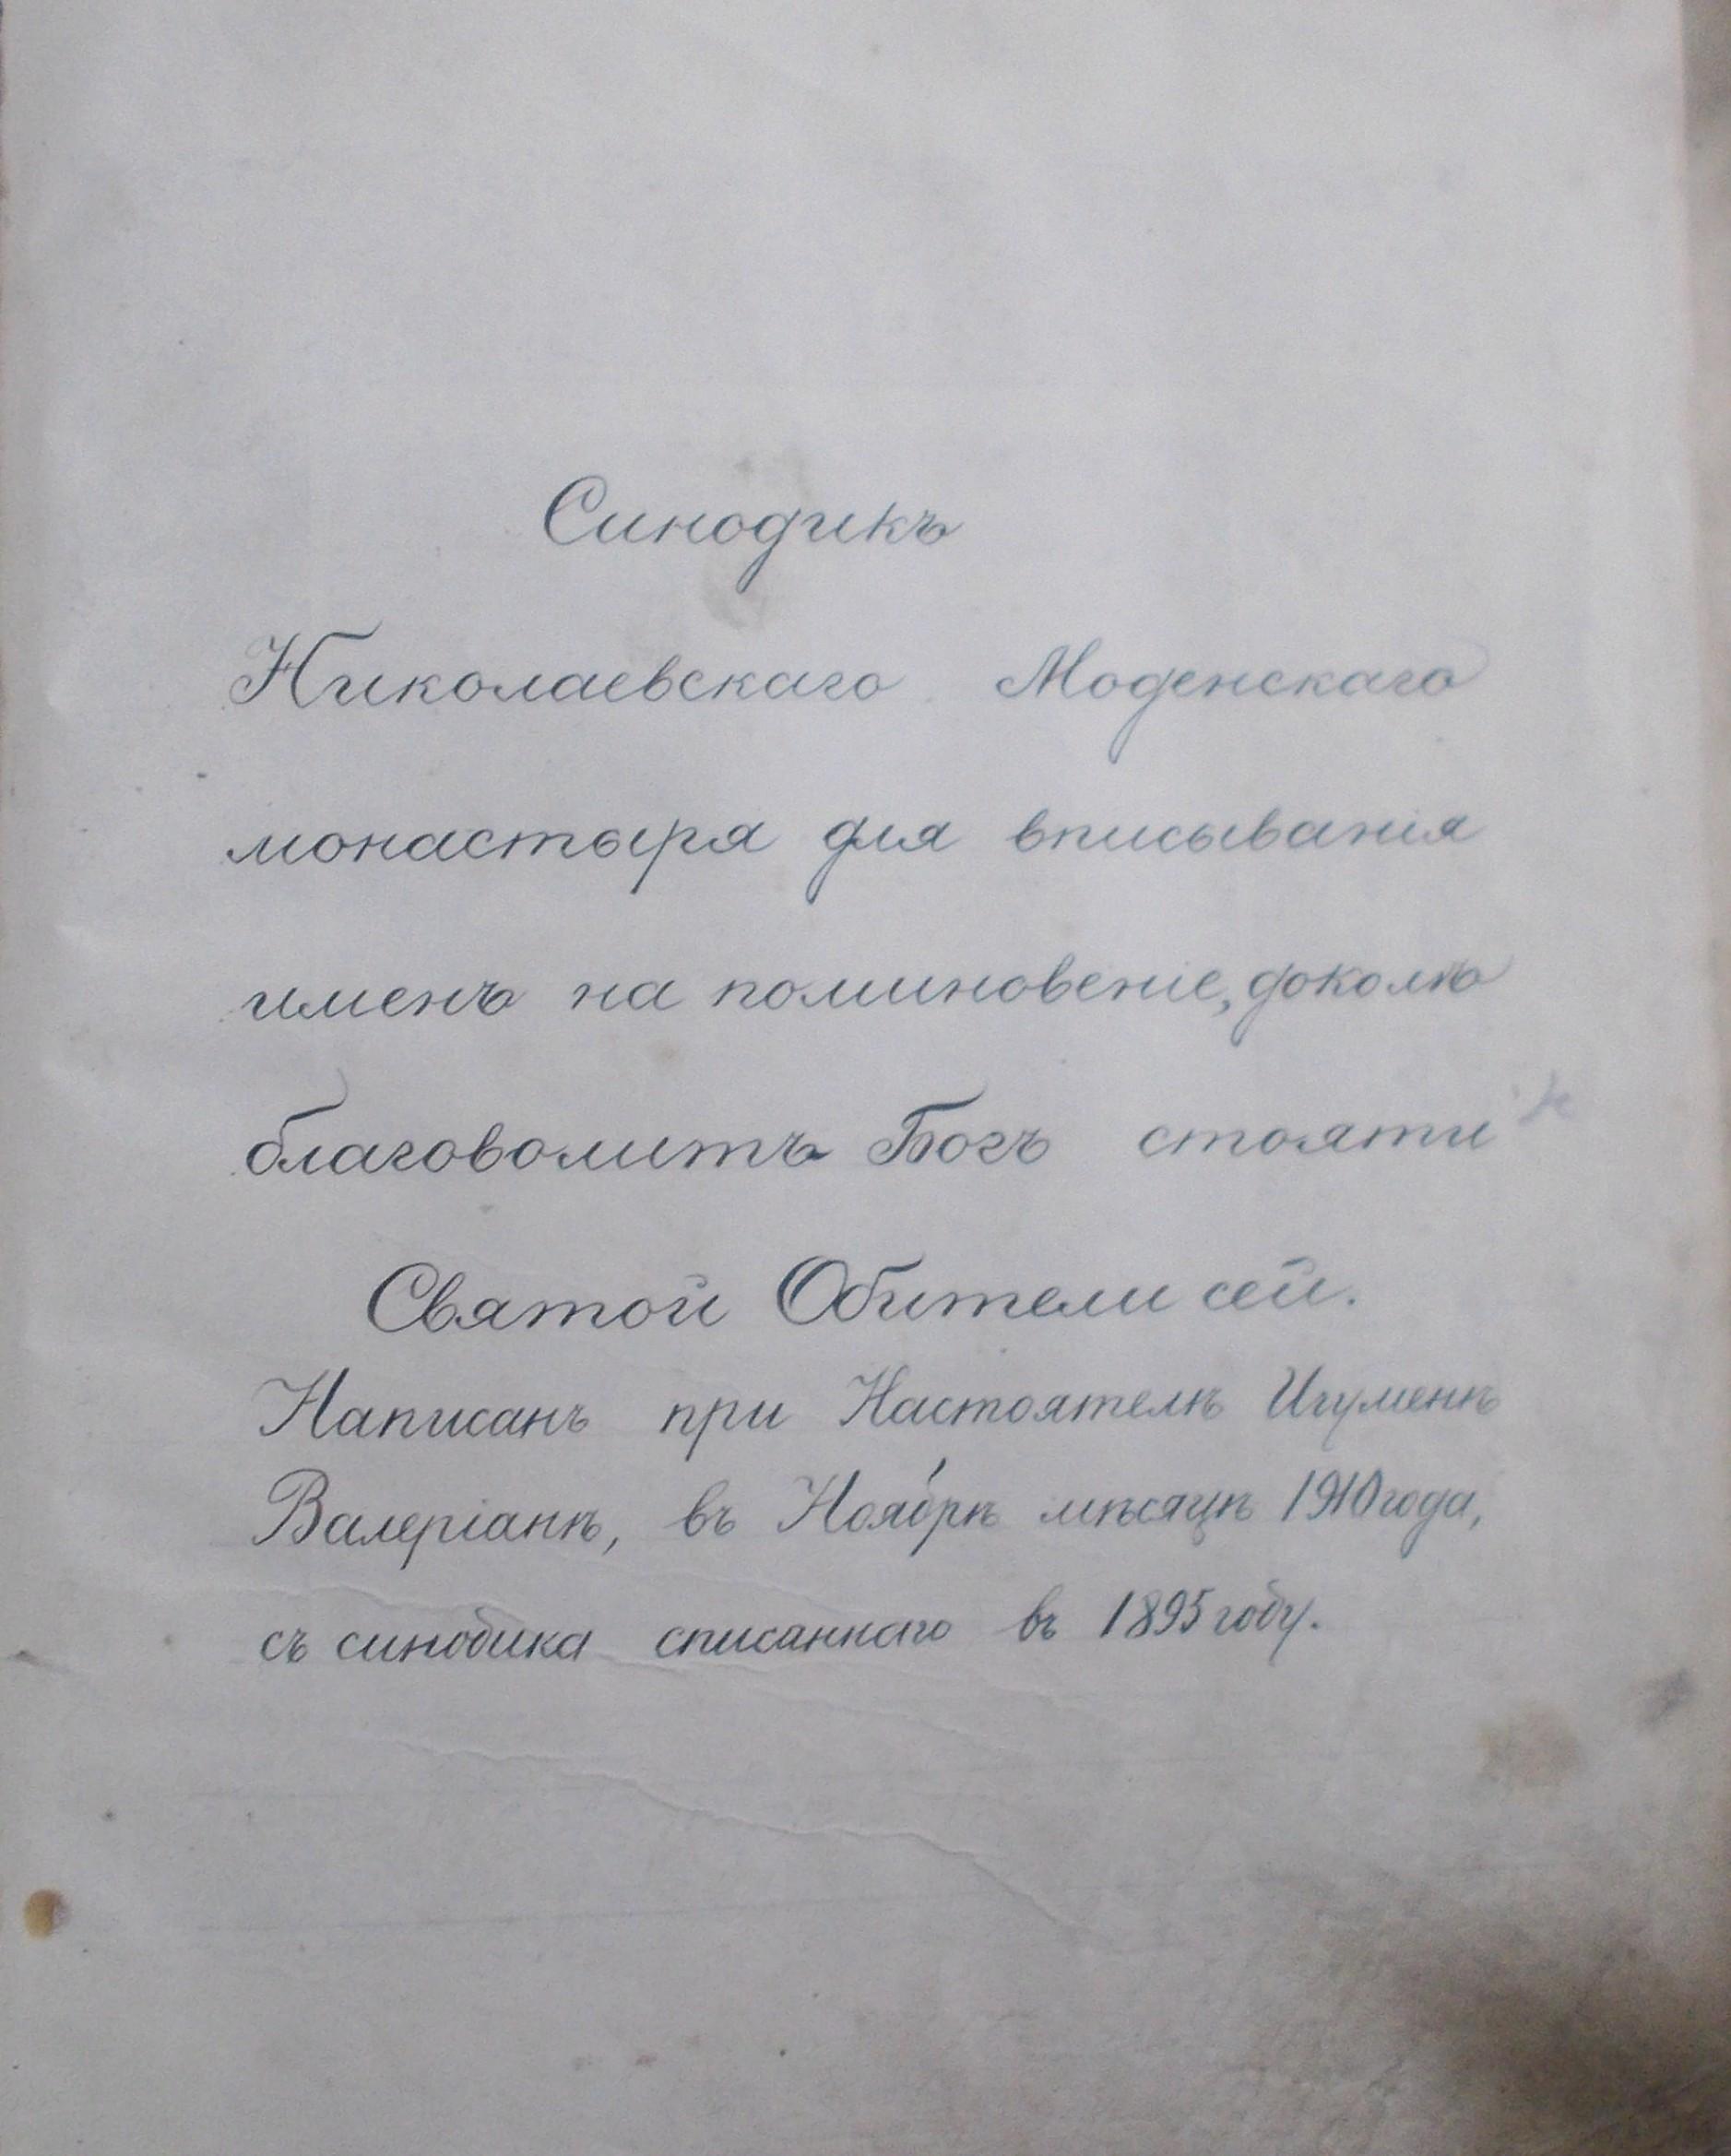 Синодикъ
Николаевскаго Моденскаго
монастыря для вписыванія
именъ на поминовеніе, доколѣ
благоволитъ Богъ стояти
Святой Обители сей.
Написанъ при Настоятелѣ Игуменѣ
Валеріанѣ, въ Ноябрѣ мѣсяцѣ 1910 года,
съ синодика списаннаго въ 1895 году.